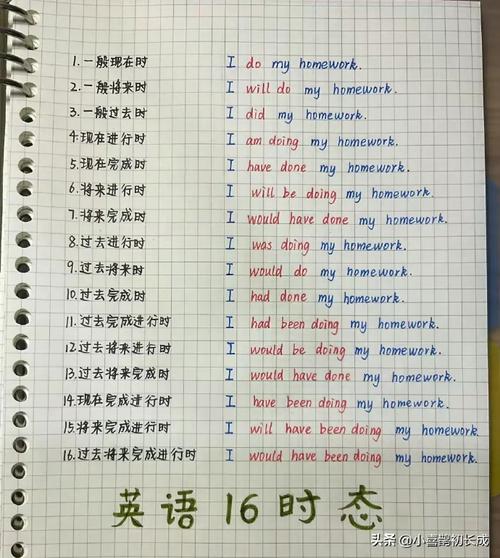 1. 一般现在时 I do my homework.
2. 一般将来时 I will do my homework.
3. 一般过去时 I did my homework.
4. 现在进行时 I am doing my homework.
5. 现在完成时 I have done my homework.
6. 将来进行时 I will be doing my homework.
7. 将来完成时 I would have done my homework.
8. 过去进行时 I was doing my homework.
9. 过去将来时 I would do my homework.
10. 过去完成时 I had done my homework.
11. 过去完成进行时 I had been doing my homework.
12. 过去将来进行时 I would be doing my homework.
13. 过去将来完成时 I would have done my homework.
14. 现在完成进行时 I have been doing my homework.
15. 将来完成进行时 I will have been doing my homework.
16. 过去将来完成进行时 I would have been doing my homework.
英语16时态
头条 @小喜鹊初长成